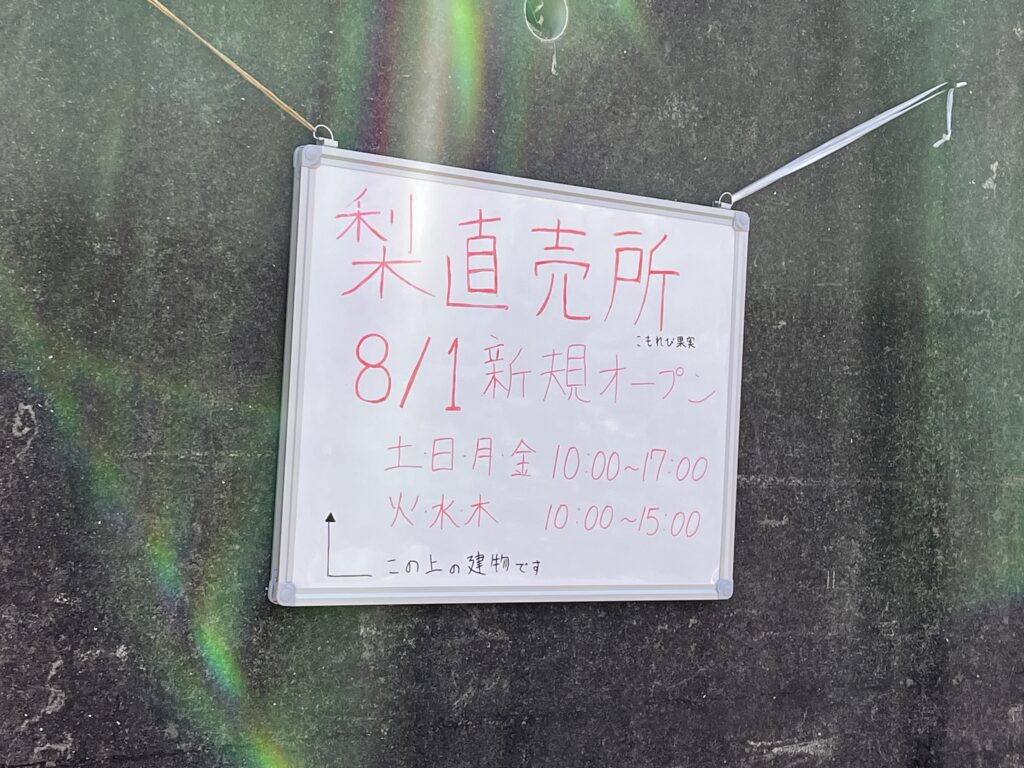 梨直売所
こもれび果実
8/1 新規オープン
土・日・月・金 10:00~17:00
火・水・木 10:00~15:00
この上の建物です